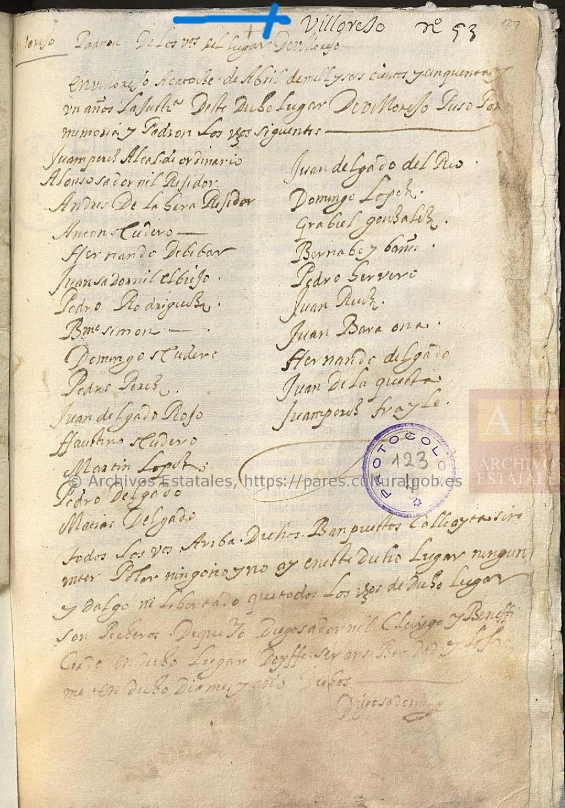 Villoreso nº 53
127
Padron De los vºs del lugar De
En Acatorçe de Abril de mill y seis cientos y cinquenta y
un años La Justª Deste Dicho Lugar De Puso Por
numeria y Padron Los vºs siguientes
Juan perez Alcalde ordinario
Alonso sadornil Rejidor
Andres De la Rejidor
Anton scudero
Hernando Debibar
Juan sadornil el biejo
Pedro Rodriguez
Bme simon
Domingo scudero
Pedro Perez
Juan delgado Roso
Faustino scudero
Martin Lopez
Pedro Delgado
Matias Delgado
Juan delgado del Rio
Domingo Lopez
Grabiel gonzalez
Bernabe ybañez
Pedro herrero
Juan Ruiz
Juan Bara ona
Hernando delgado
Juan De la questa
Juan perez frayle
PROTOCOLO
123
ARCHIVOS
ESTATALES
© Archivos Estatales, https://pares.cultura.gob.es
todos Los vºs Ariba Dichos Ban puestos Calle ayta sin
inter Polar ninguno y no ay en este Dicho Lugar ningun
y dalgo ni libertado que todos Los vºs de Dicho Lugar
son Pecheros De que yo Diego sadornil Clerigo y Beneffi
Ciado En dicho Lugar Doy ffe y Lo fir
me en dicho Dia mes y año
Diego sadornil